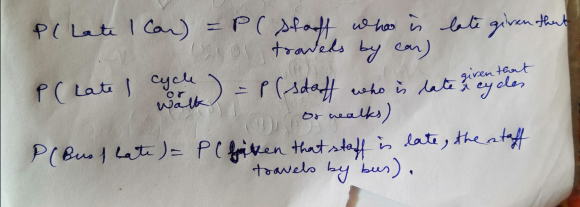 P( Late | Car) = P( staff who is late given that
travels by car)
P( Late | cycle or walk ) = P( staff who is late given that cycles
or walks)
P(Bus | Late) = P( Given that staff is late, the staff
travels by bus).